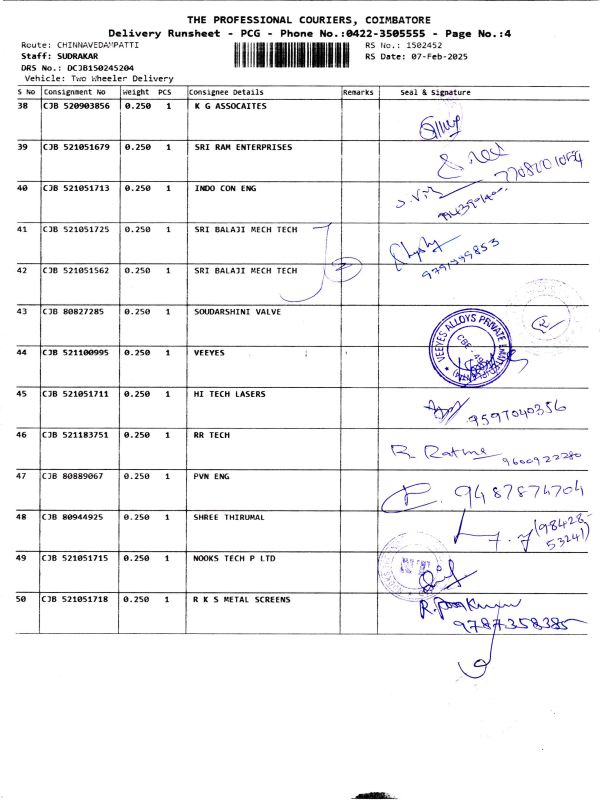 THE PROFESSIONAL COURIERS, COIMBATORE
Delivery Runsheet - PCG - Phone No.:0422-3505555 - Page No.:4
Route: CHINNAVEDAMPATTI RS No.: 1502452
Staff: SUDRAKAR RS Date: 07-Feb-2025
DRS No.: DCJB150245204
Vehicle: Two Wheeler Delivery
S No Consignment No Weight PCS Consignee Details Remarks Seal & Signature
38 CJB 520903856 0.250 1 K G ASSOCAITES
39 CJB 521051679 0.250 1 SRI RAM ENTERPRISES
40 CJB 521051713 0.250 1 INDO CON ENG
41 CJB 521051725 0.250 1 SRI BALAJI MECH TECH
9791999853
42 CJB 521051562 0.250 1 SRI BALAJI MECH TECH 2
43 CJB 80827285 0.250 1 SOUDARSHINI VALVE
44 CJB 521100995 0.250 1 VEEYES VEEYES ALLOYS PRIVATE LIMITED
45 CJB 521051711 0.250 1 HI TECH LASERS 9597040356
46 CJB 521183751 0.250 1 RR TECH R. Ratma 9600922280
47 CJB 80889067 0.250 1 PVN ENG 9487874704
48 CJB 80944925 0.250 1 SHREE THIRUMAL (98428-
53241)
49 CJB 521051715 0.250 1 NOOKS TECH P LTD
50 CJB 521051718 0.250 1 R K S METAL SCREENS
9787358385